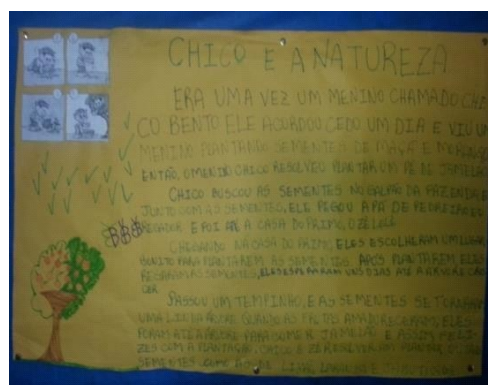 CHICO E A NATUREZA
ERA UMA VEZ UM MENINO CHAMADO CHI
CO BENTO ELE ACORDOU CEDO UM DIA E VIU UM
MENINO PLANTANDO SEMENTES DE MAÇA E
ENTÃO, O MENINO CHICO RESOLVEU PLANTAR UM PÉ DE JAMELÃO
CHICO BUSCOU AS SEMENTES NO GALPÃO DA FAZENDA E
JUNTO COM AS SEMENTES, ELE PEGOU A PÁ DE PEDREIRO E O
REGADOR E FOI ATÉ A CASA DO PRIMO, O ZÉ LELÉ
CHEGANDO NA CASA DO PRIMO, ELES ESCOLHERAM UM LUGAR
BONITO PARA PLANTAREM AS SEMENTES APÓS PLANTAREM, ELES
REGARAM AS SEMENTES, ELES ESPERARAM UNS DIAS ATÉ A ÁRVORE CRES
CER
PASSOU UM TEMPINHO, E AS SEMENTES SE TORNARAM
UMA LINDA ÁRVORE QUANDO AS FRUTAS AMADURECERAM, ELES
FORAM ATÉ A ÁRVORE PARA COMER JAMELÃO E ASSIM FELI
ZES COM A PLANTAÇÃO, CHICO E ZÉ RESOLVERAM PLANTAR
SEMENTES, COMO LARANJA E